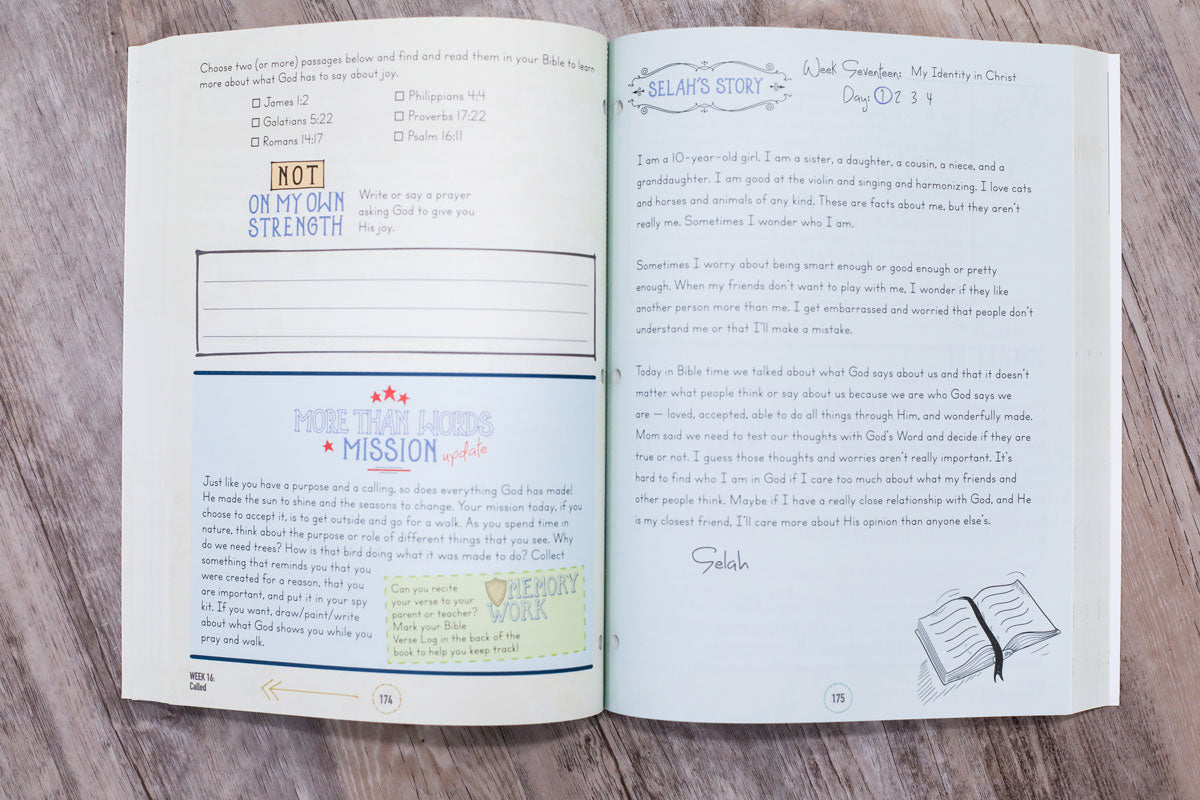 Choose two (or more) passages below and find and read them in your Bible to learn
more about what God has to say about joy.
☐ James 1:2
☐ Galatians 5:22
☐ Romans 14:17
☐ Philippians 4:4
☐ Proverbs 17:22
☐ Psalm 16:11
NOT
ON MY OWN
STRENGTH
Write or say a prayer
asking God to give you
His joy.
MORE THAN WORDS
MISSION update
Just like you have a purpose and a calling, so does everything God has made!
He made the sun to shine and the seasons to change. Your mission today, if you
choose to accept it, is to get outside and go for a walk. As you spend time in
nature, think about the purpose or role of different things that you see. Why
do we need trees? How is that bird doing what it was made to do? Collect
something that reminds you that you
were created for a reason, that you
are important, and put it in your spy
kit. If you want, draw/paint/write
about what God shows you while you
pray and walk.
MEMORY
WORK
Can you recite
your verse to your
parent or teacher?
Mark your Bible
Verse Log in the back of the
book to help you keep track!
WEEK 16:
Called
174
SELAH'S STORY
Week Seventeen: My Identity in Christ
Day: 1 2 3 4
I am a 10-year-old girl. I am a sister, a daughter, a cousin, a niece, and a
granddaughter. I am good at the violin and singing and harmonizing. I love cats
and horses and animals of any kind. These are facts about me, but they aren't
really me. Sometimes I wonder who I am.
Sometimes I worry about being smart enough or good enough or pretty
enough. When my friends don't want to play with me, I wonder if they like
another person more than me. I get embarrassed and worried that people don't
understand me or that I'll make a mistake.
Today in Bible time we talked about what God says about us and that it doesn't
matter what people think or say about us because we are who God says we
are — loved, accepted, able to do all things through Him, and wonderfully made.
Mom said we need to test our thoughts with God's Word and decide if they are
true or not. I guess those thoughts and worries aren't really important. It's
hard to find who I am in God if I care too much about what my friends and
other people think. Maybe if I have a really close relationship with God, and He
is my closest friend, I'll care more about His opinion than anyone else's.
Selah
175